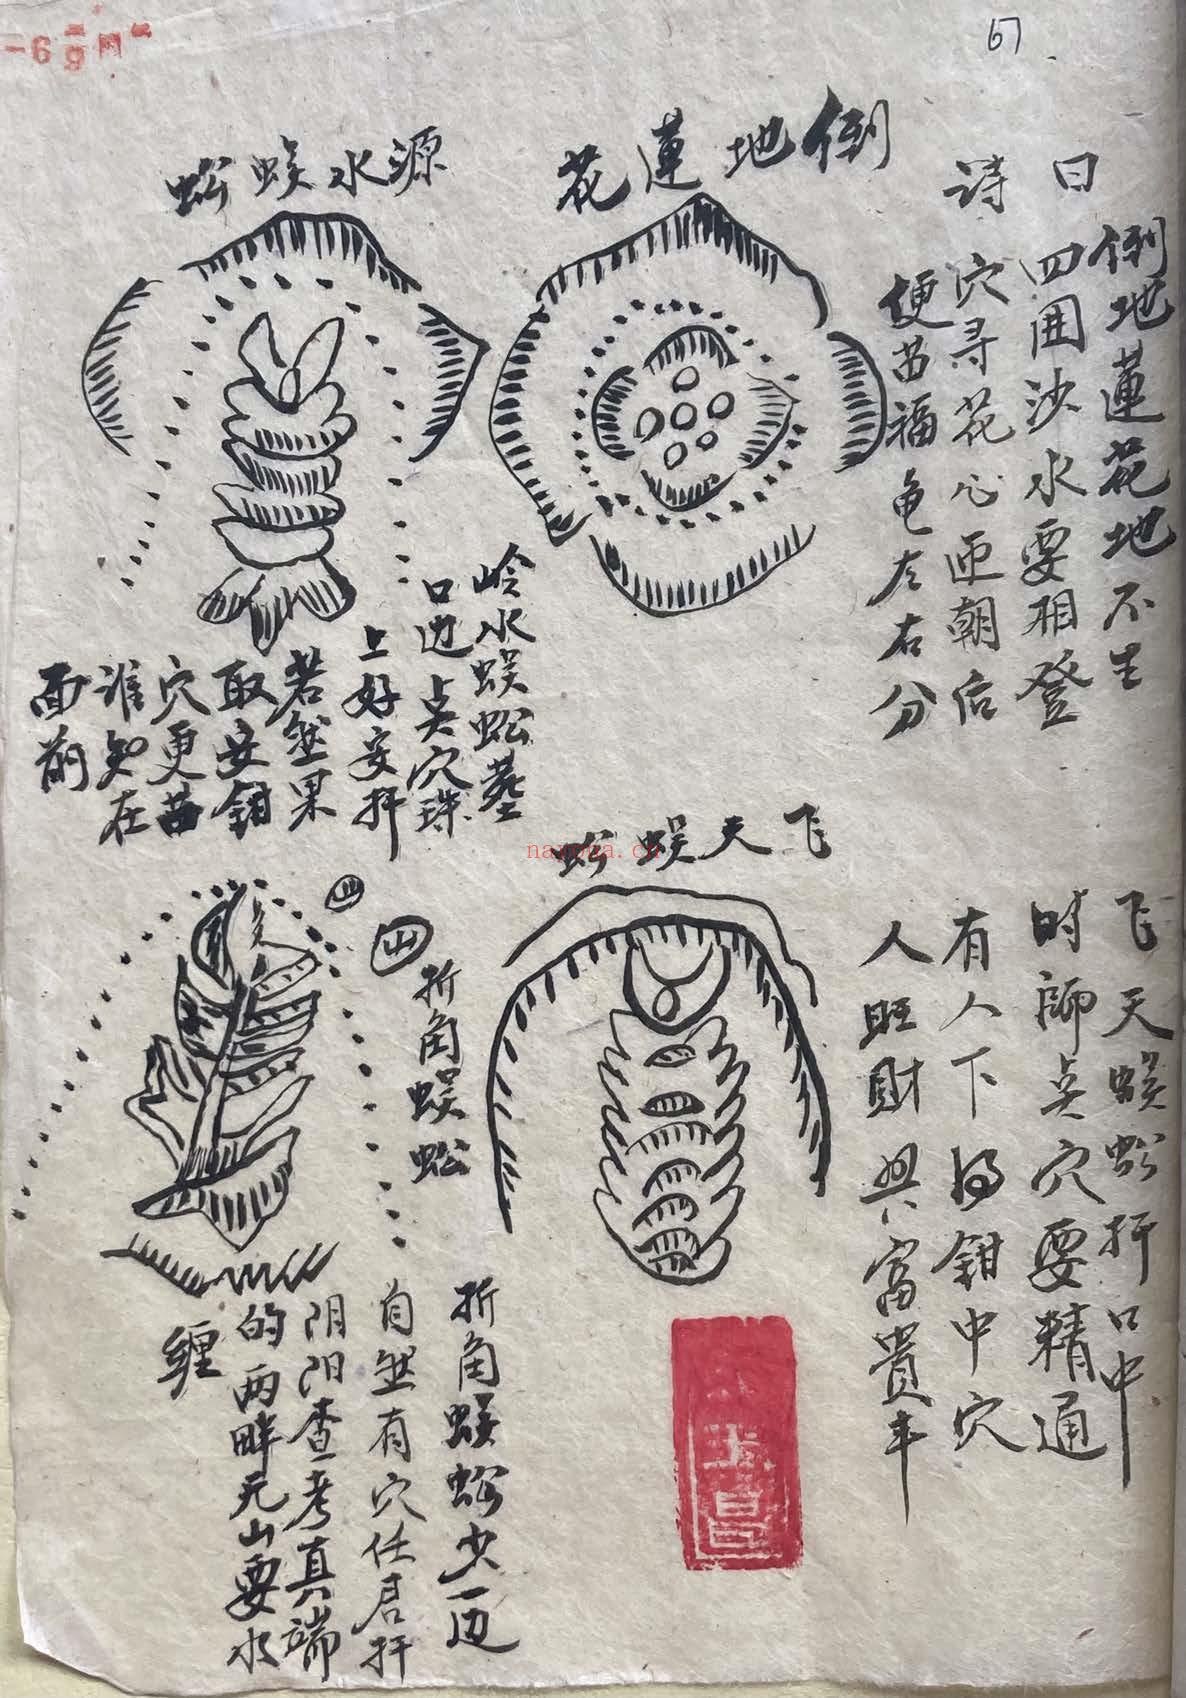 67
倒地蓮花
詩曰
倒地蓮花地不生
四囲沙水要相登
穴寻花心迎朝后
便出福龟左右分
源水蜈蚣
岭水蜈蚣墓
口边点穴珠
上好安扦
若然果
取安鉗
穴更苗
谁知在
面前
飞天蜈蚣
飞天蜈蚣扦口中
时师点穴要精通
有人下得鉗中穴
人旺財興富貴年
山
山
折角蜈蚣
折角蜈蚣少一边
自然有穴任君扦
阴阳查考真端
的两畔无山要水
缠
nayona.cn